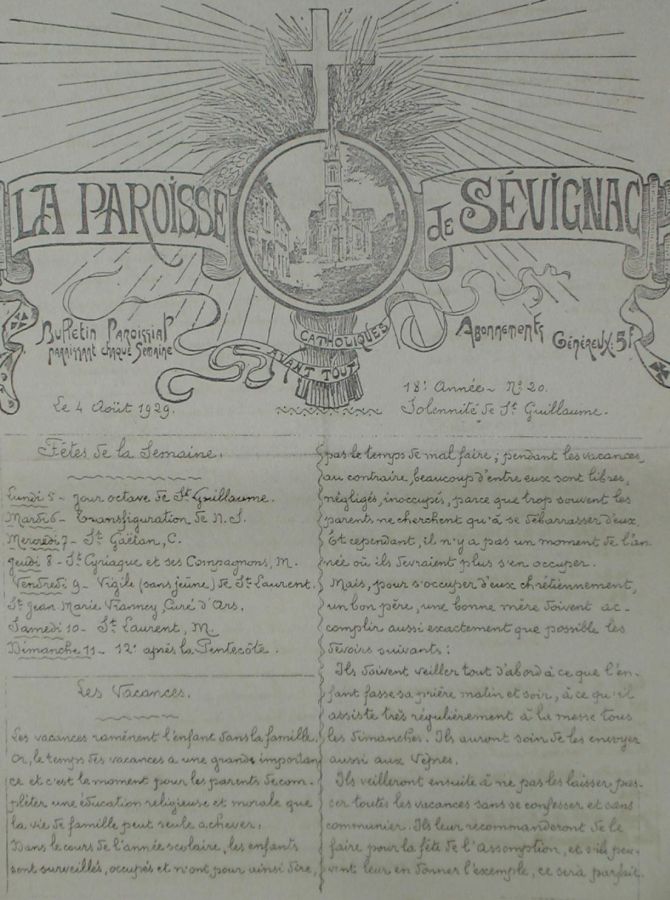 LA PAROISSE
de SÉVIGNAC
Bulletin Paroissial
paraissant chaque Semaine
CATHOLIQUES
AVANT TOUT
Abonnements
Généreux: 5f
18e Année - No 20.
Le 4 Août 1929.
Solennité de St Guillaume.
Fêtes de la Semaine.
Lundi 5 - Jour octave de St Guillaume.
Mardi 6 - Transfiguration de N. S.
Mercredi 7 - St Gaëtan, C.
Jeudi 8 - St Cyriaque et ses Compagnons, M.
Vendredi 9 - Vigile (sans jeûne) de St Laurent.
St Jean Marie Vianney, Curé d'Ars.
Samedi 10 - St Laurent, M.
Dimanche 11 - 12e après la Pentecôte.
Les Vacances.
Les vacances ramènent l'enfant dans la famille.
Or, le temps des vacances a une grande importan
ce et c'est le moment pour les parents de com-
pléter une éducation religieuse et morale que
la vie de famille peut seule achever.
Dans le cours de l'année scolaire, les enfants
sont surveillés, occupés et n'ont pour ainsi dire,
pas le temps de mal faire; pendant les vacances,
au contraire, beaucoup d'entre eux sont libres,
négligés, inoccupés, parce que trop souvent les
parents ne cherchent qu'à se débarrasser d'eux.
Et cependant, il n'y a pas un moment de l'an-
née où ils devraient plus s'en occuper.
Mais, pour s'occuper d'eux chrétiennement,
un bon père, une bonne mère doivent ac-
complir aussi exactement que possible les
devoirs suivants:
Ils doivent veiller tout d'abord à ce que l'en-
fant fasse sa prière matin et soir, à ce qu'il
assiste très régulièrement à la messe tous
les dimanches. Ils auront soin de les envoyer
aussi aux Vêpres.
Ils veilleront ensuite à ne pas les laisser pas-
ser toutes les vacances sans se confesser et sans
communier. Ils leur recommanderont de le
faire pour la fête de l'Assomption, et s'ils peu-
vent leur en donner l'exemple, ce sera parfait.